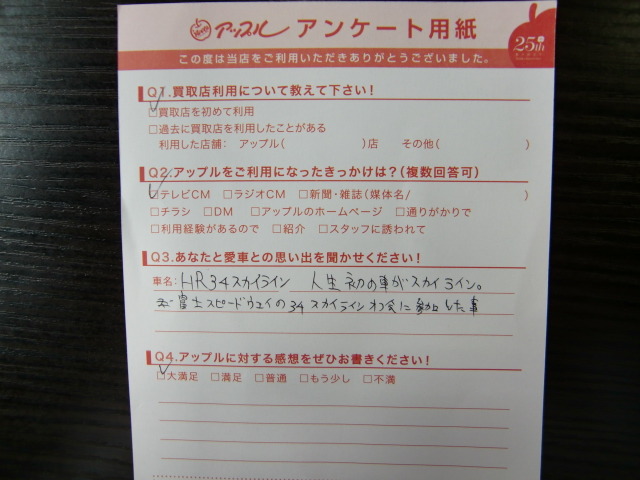 アップル アンケート用紙
25th
この度は当店をご利用いただきありがとうございました。
Q1.買取店利用について教えて下さい!
□買取店を初めて利用
□過去に買取店を利用したことがある
利用した店舗: アップル( )店 その他( )
Q2.アップルをご利用になったきっかけは?(複数回答可)
□テレビCM □ラジオCM □新聞・雑誌(媒体名/ )
□チラシ □DM □アップルのホームページ □通りがかりで
□利用経験があるので □紹介 □スタッフに誘われて
Q3.あなたと愛車との思い出を聞かせください!
車名: HR34スカイライン 人生初の車がスカイライン。
富士スピードウェイの34スカイラインオフ会に参加した事
Q4.アップルに対する感想をぜひお書きください!
□大満足 □満足 □普通 □もう少し □不満